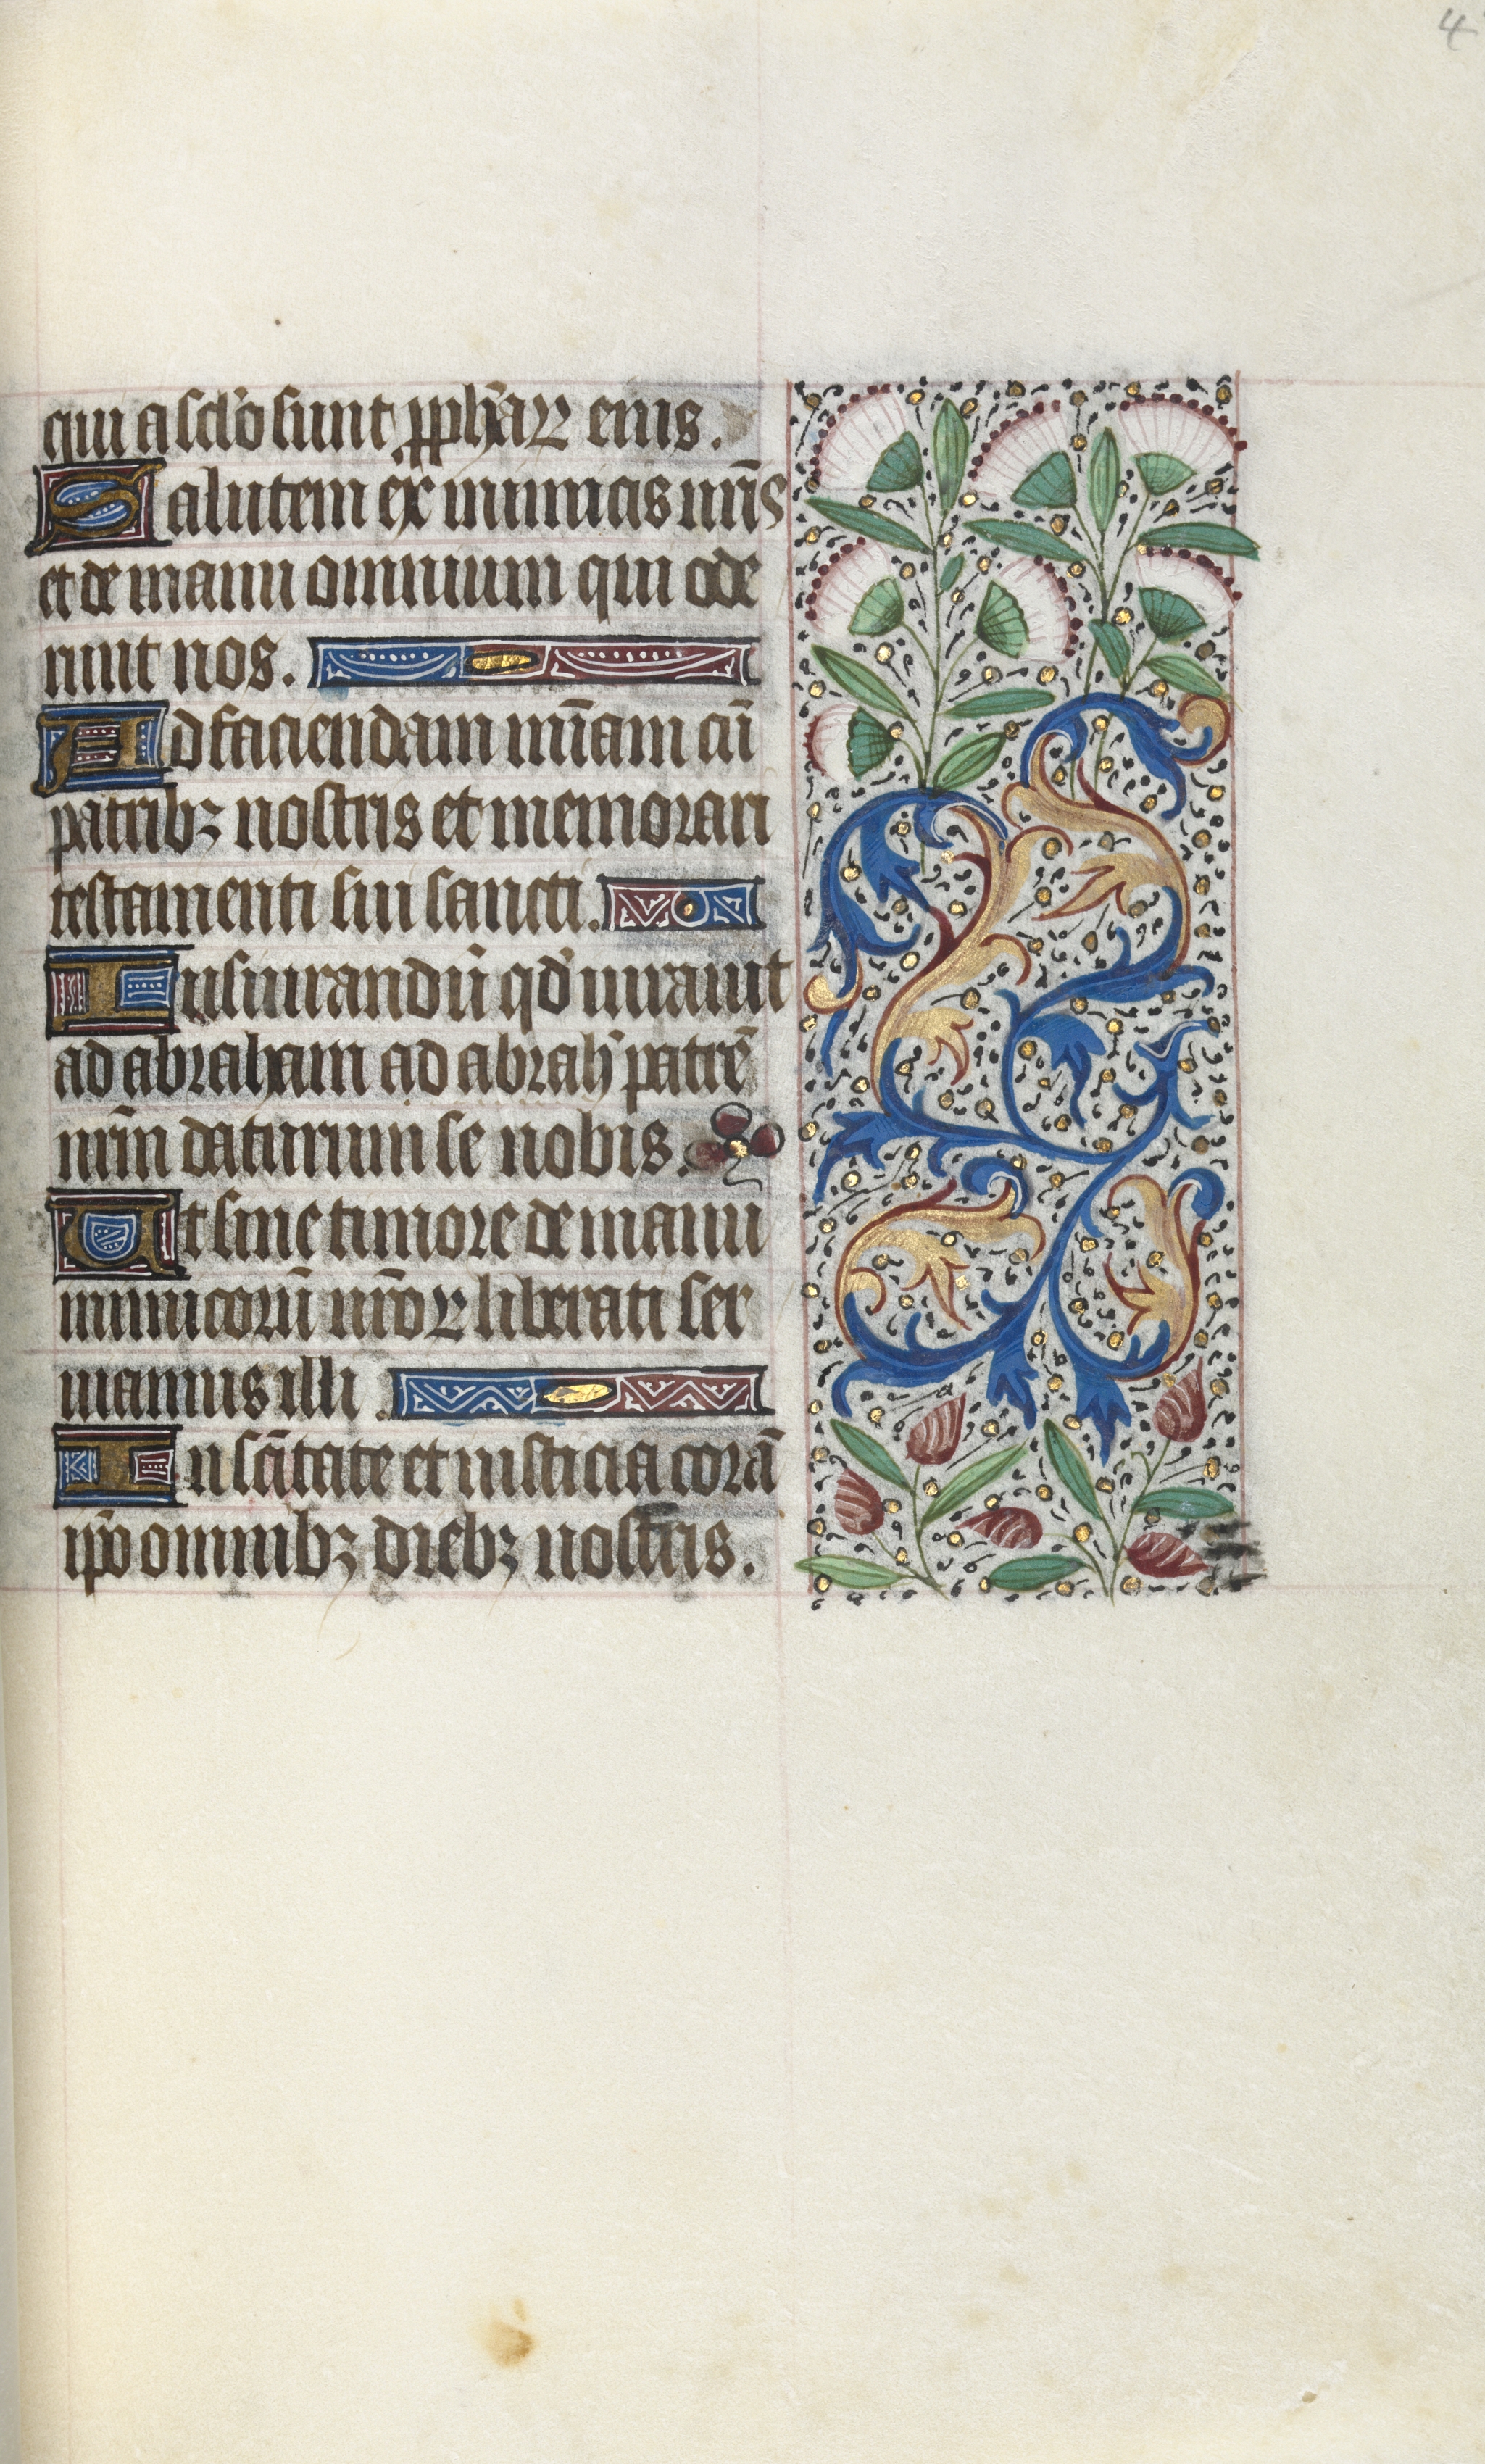 4
qui a sclo sunt ꝓphaꝝ eius.
Salutem ex inimicis nr̄is
et de manu omnium qui ode
runt nos.
Ad faciendam mīam cū
patribꝫ nostris et memorari
testamenti sui sancti.
Iusiurandū qd' iurauit
ad abraham ad abrah' patrē
nrm̄ daturum se nobis.
Ut sine timore de manu
inimicorū nr̄oꝝ liberati ser
uiamus illi.
In scītate et iusticia corā
ip̄o omnibꝫ diebꝫ nostris.